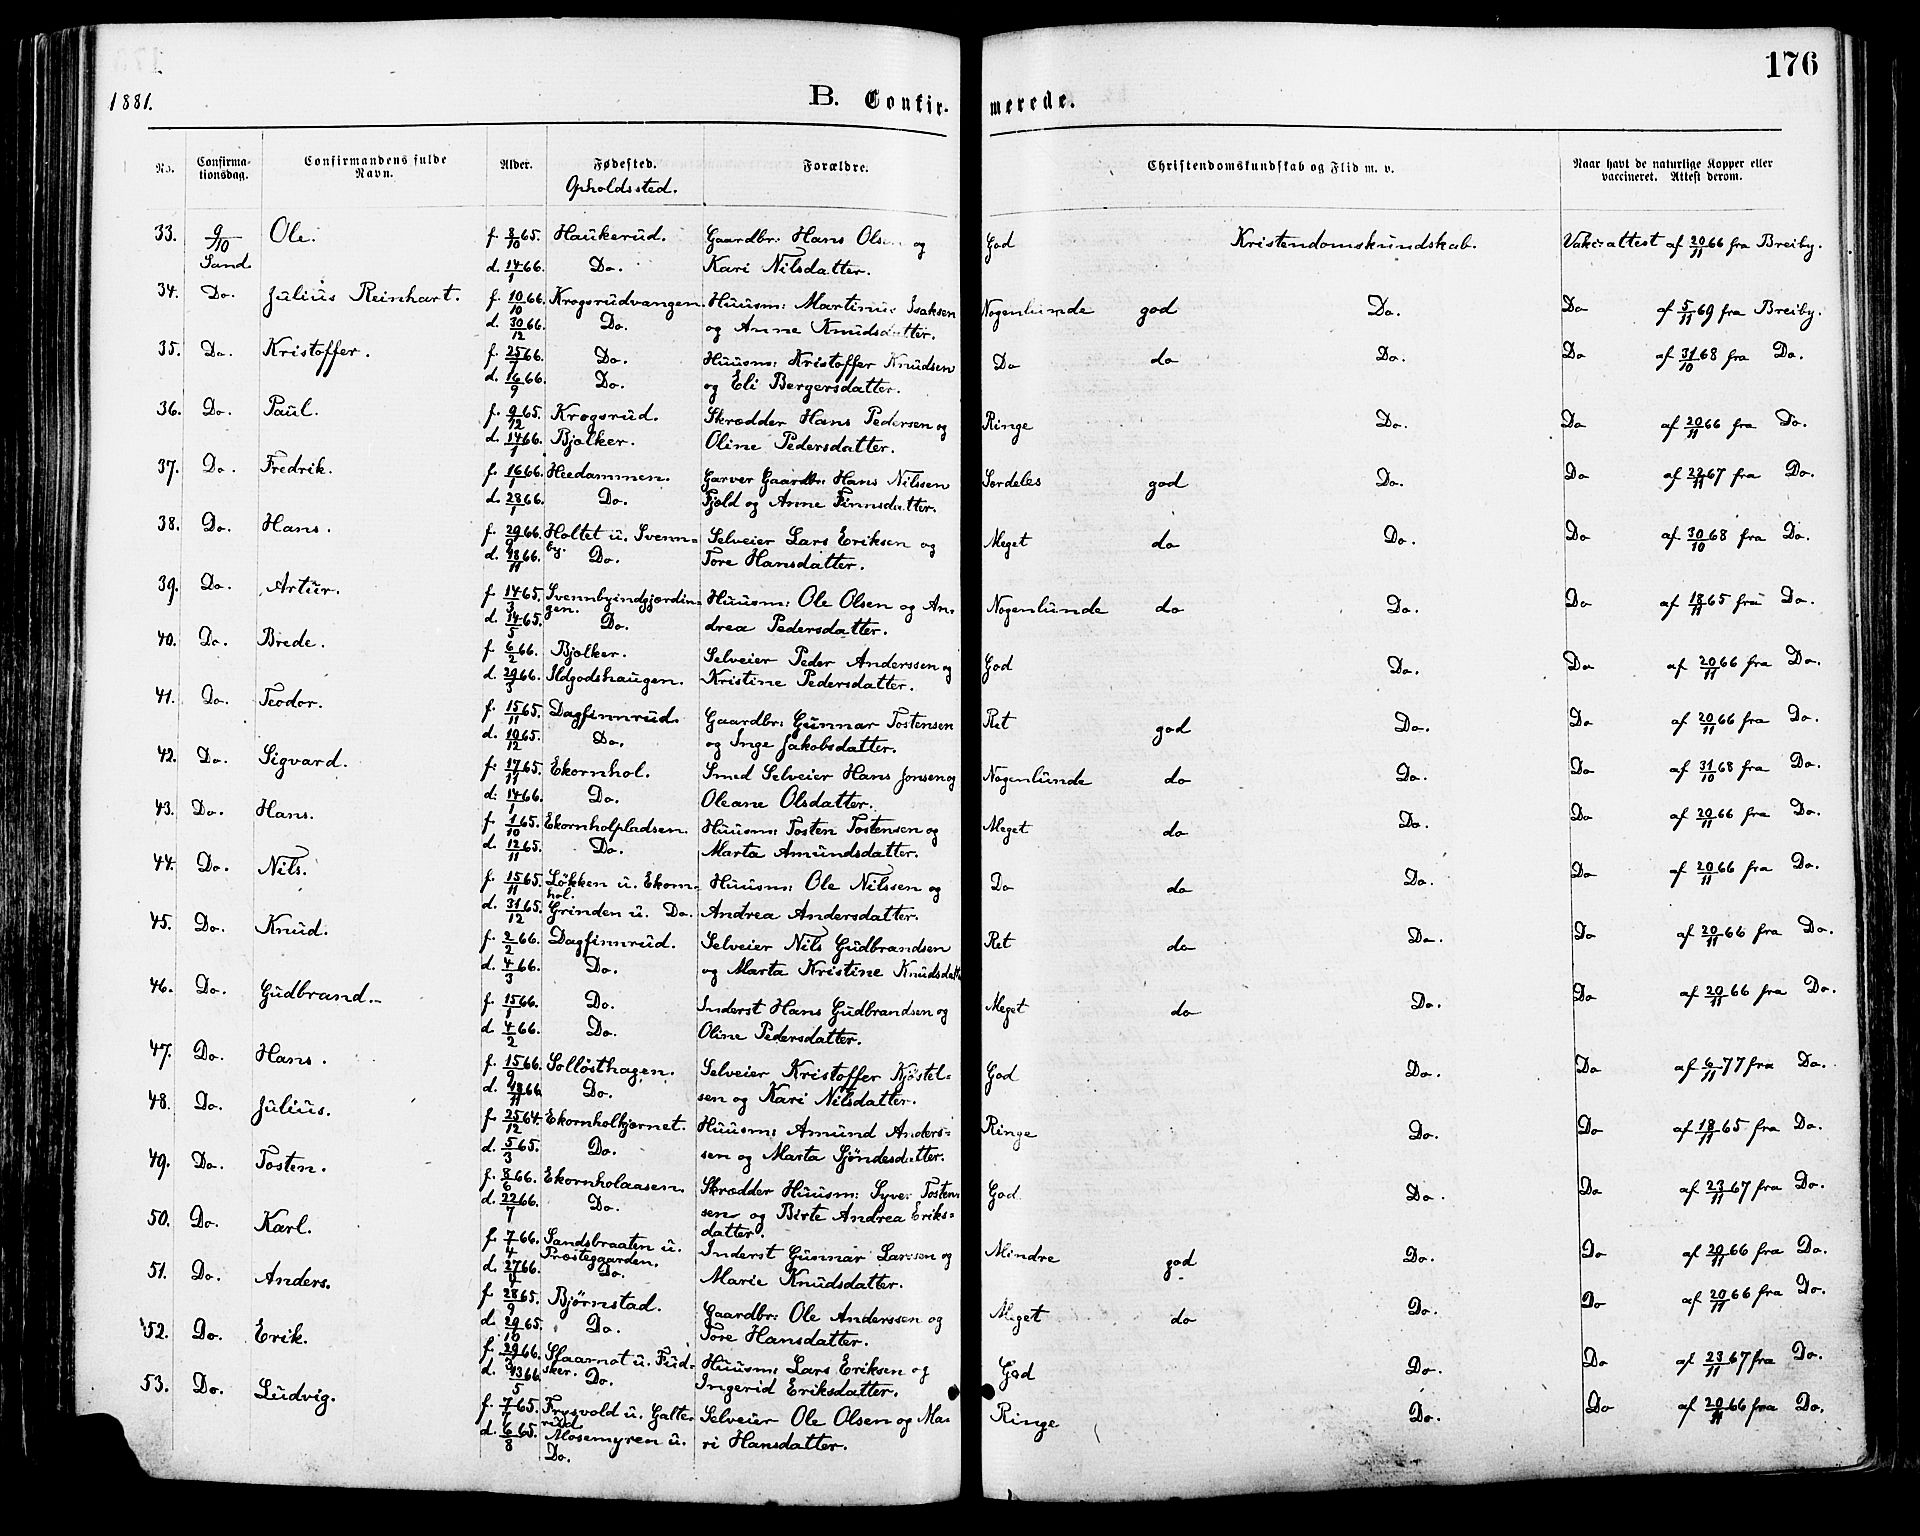 176
1881.
B. Confirmerede.
No. Confirmationsdag. Confirmandens fulde Navn. Alder. Fødested. Forældre. Christendomskundskab og Flid m. v. Naar havt de naturlige Kopper eller vaccineret. Attest derom.
Opholdssted.
33. 9/10 Ole. f. 8/10 65. Haukerud. Gaardbr: Hans Olsen og God Kristendomskundskab. Vakc: attest af 20/11 66 fra Breiby.
Sand. d. 14/1 66. Do. Kari Nilsdatter.
34. Do. Julius Reinhart. f. 10/10 66. Krogsrudvangen. Huusm: Martinus Isaksen Nogenlunde god Do. Do af 5/11 69 fra Breiby.
d. 30/12 66. Do. og Anne Knudsdatter.
35. Do. Kristoffer. f. 25/7 66. Do. Huusm: Kristoffer Knudsen Do do Do. Do af 31/10 68 fra Do.
d. 16/9 66. Do. og Eli Bergersdatter.
36. Do. Paul. f. 9/12 65. Krogsrud. Skrædder Hans Pedersen og Ringe Do. Do af 20/11 66 fra Do.
d. 14/1 66. Bjølker. Oline Pedersdatter.
37. Do. Fredrik. f. 16/1 66. Heedammen. Garver Gaardbr: Hans Nilsen Særdeles god Do. Do af 22/11 67 fra Do.
d. 28/1 66. Do. Fjeld og Anne Finnsdatter.
38. Do. Hans. f. 29/9 66. Holtet u. Svenn- Selveier Lars Eriksen og Meget do Do. Do af 30/10 68 fra Do.
by.
d. 18/11 66. Do. Tore Hansdatter.
39. Do. Artur. f. 14/3 65. Svennbyindgjærdin- Huusm: Ole Olsen og An- Nogenlunde do Do. Do af 18/11 65 fra Do.
gen.
d. 14/5 65. Do. drea Pedersdatter.
40. Do. Brede. f. 6/2 66. Bjølker. Selveier Peder Anderssen og God Do. Do af 20/11 66 fra Do.
d. 29/3 66. Ildgodshaugen. Kristine Pedersdatter.
41. Do. Teodor. f. 15/11 65. Dagfinnrud. Gaardbr: Gunnar Tostensen Ret god Do. Do af 20/11 66 fra Do.
d. 10/12 65. Do. og Inge Jakobsdatter.
42. Do. Sigvard. f. 17/11 65. Ekornhol. Smed Selveier Hans Jonsen og Nogenlunde do Do. Do af 31/10 68 fra Do.
d. 14/1 66. Do. Oleane Olsdatter.
43. Do. Hans. f. 1/10 65. Ekornholpladsen. Huusm: Tosten Tostensen og Meget do Do. Do af 20/11 66 fra Do.
d. 12/11 65. Do. Marta Amundsdatter.
44. Do. Nils. f. 15/11 65. Løkken u. Ekorn- Huusm: Ole Nilssen og Do do Do. Do af 20/11 66 fra Do.
hol.
d. 31/12 65. Grinden u. Do. Andrea Andersdatter.
45. Do. Knud. f. 2/2 66. Dagfinnrud. Selveier Nils Gudbrandsen Ret do Do. Do af 20/11 66 fra Do.
d. 4/3 66. Do. og Marta Kristine Knudsdatt
46. Do. Gudbrand. f. 15/1 66. Do. Inderst Hans Gudbrandsen og Meget do Do. Do af 20/11 66 fra Do.
d. 4/2 66. Do. Oline Pedersdatter.
47. Do. Hans. f. 15/9 66. Solløsthagen. Selveier Kristoffer Kjøstel- God Do. Do af 6/11 77 fra Do.
d. 18/11 66. Do. sen og Kari Nilsdatter.
48. Do. Julius. f. 25/12 64. Ekornholkjernet. Huusm: Amund Anders- Ringe Do. Do af 18/11 65 fra Do.
d. 5/3 65. Do. sen og Marta Sjøndesdatter.
49. Do. Tosten. f. 8/6 66. Ekornholaasen. Skrædder Huusm: Syver Tosten God. Do. Do af 23/11 67 fra Do.
d. 22/7 66. Do. sen og Birte Andrea Eriks-
datter.
50. Do. Karl. f. 7/4 66. Sandsbraaten u. Inderst Gunnar Larssen og Mindre god Do. Do af 20/11 66 fra Do.
Præsteggarden.
d. 27/4 66. Do. Marie Knudsdatter.
51. Do. Anders. f. 28/9 65. Bjørnstad. Gaardbr: Ole Anderssen og Meget do Do. Do af 20/11 66 fra Do.
d. 29/10 65. Do. Tore Hansdatter.
52. Do. Erik. f. 29/3 66. Slaarnot u. Fud- Huusm: Lars Eriksen og God Do. Do af 23/11 67 fra Do.
sker.
d. 13/5 66. Do. Ingerid Eriksdatter.
53. Do. Ludvig. f. 7/7 65. Frysvold u. Galte- Selveier Ole Olsen og Ma- Ringe Do. Do af 20/11 66 fra Do.
rud.
d. 6/8 65. Mosemyren u. ri Hansdatter.
Do.